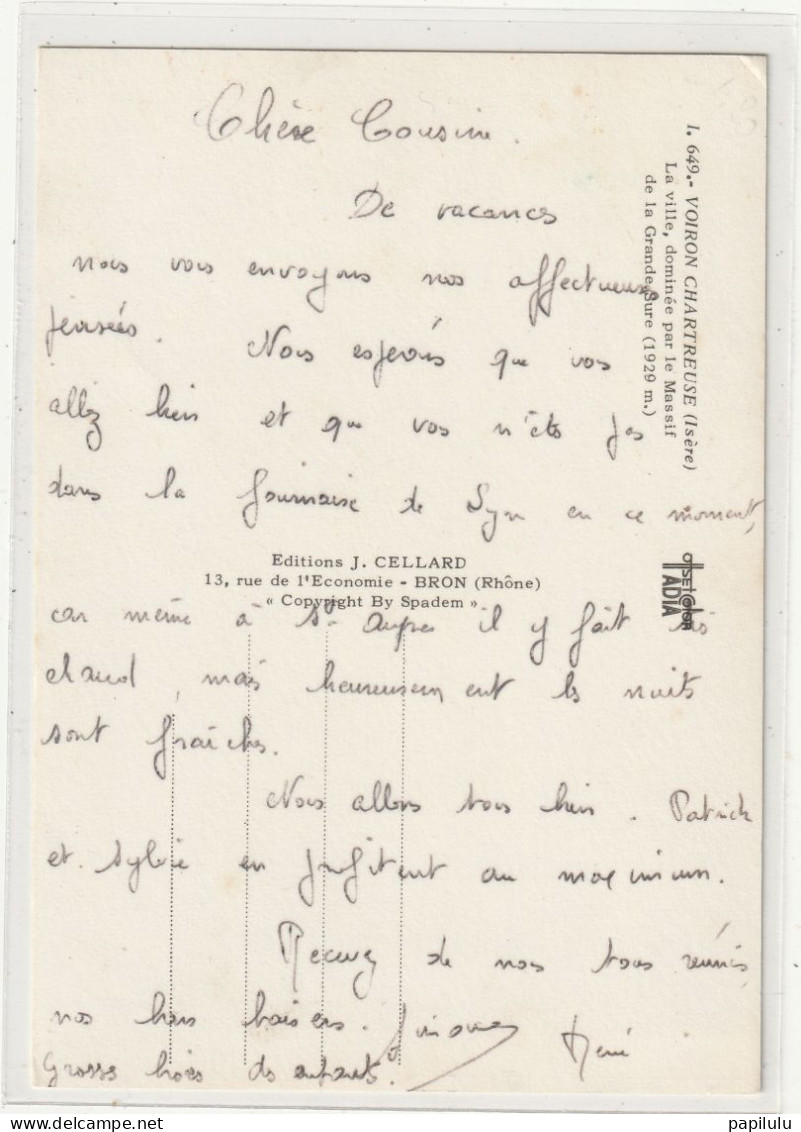 Chère Cousine.
De vacances
nous vous envoyons nos affectueuses
pensées. Nous espérons que vous
allez bien et que vous n'êtes pas
dans la fournaise de Lyon en ce moment,
car même à St Aupre il y fait très
chaud, mais heureusement les nuits
sont fraîches.
Nous allons tous bien. Patrick
et Sylvie en profitent au maximum.
Recevez de nous tous réunis
nos bons baisers. Simone René
Grosses bises des enfants.
I. 649.- VOIRON CHARTREUSE (Isère)
La ville, dominée par le Massif
de la Grande Sure (1929 m.)
Editions J. CELLARD
13, rue de l'Economie - BRON (Rhône)
« Copyright By Spadem »
OFFSETCOLOR
IADIA
papilulu